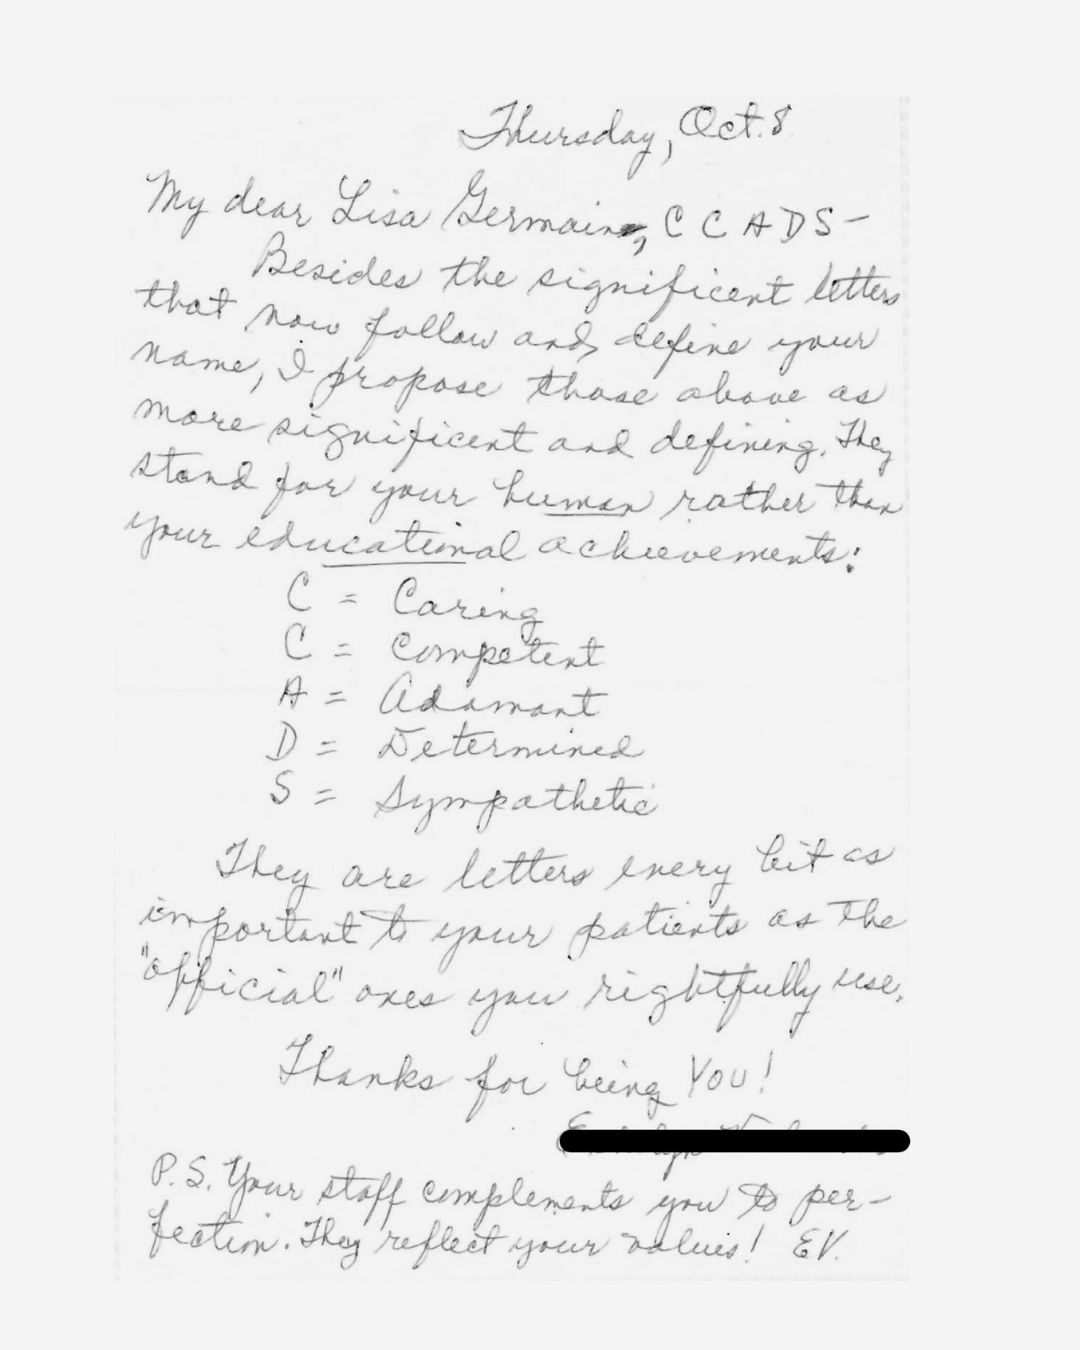 Thursday, Oct. 8
My dear Lisa Germain, C C A D S -
Besides the significant letters
that now follow and define your
name, I propose those above as
more significent and defining. They
stand for your human rather than
your educational achievements:
C = Caring
C = Competent
A = Adamant
D = Determined
S = Sympathetic
They are letters every bit as
important to your patients as the
"official" ones you rightfully use.
Thanks for being YOU!
P.S. Your staff complements you to per-
fection. They reflect your values! EV.